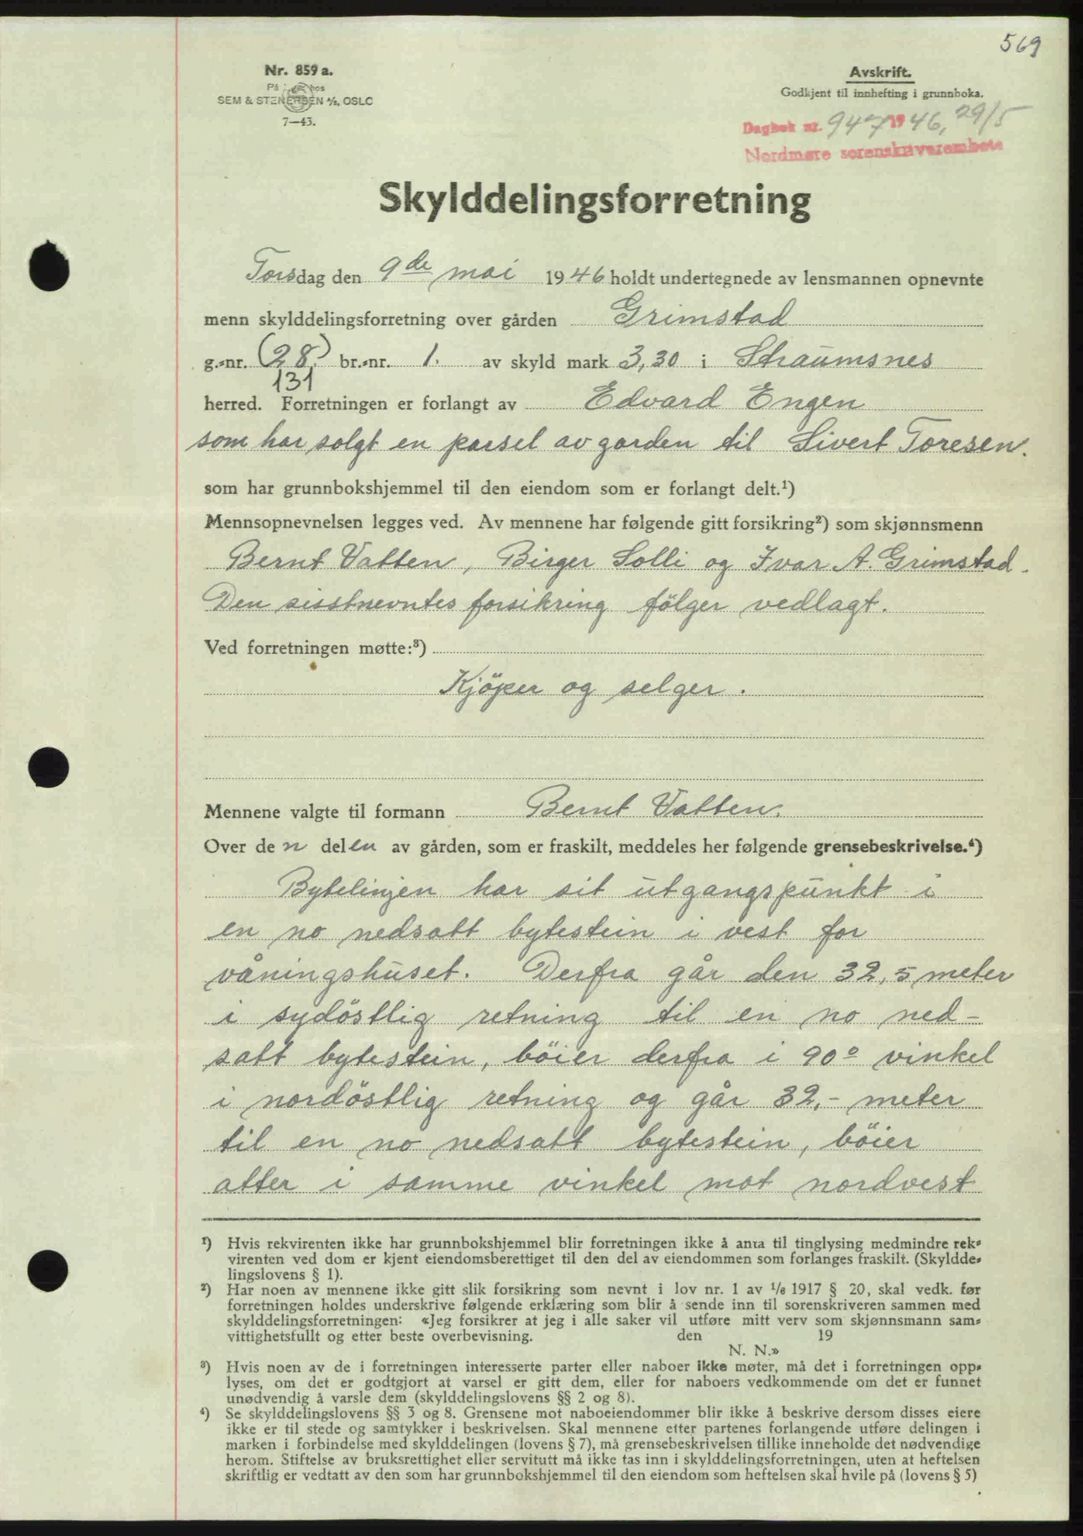 569
Nr. 859 a.
På lager hos
SEM & STENERSEN A/S, OSLO
7—43.
Avskrift.
Godkjent til innhefting i grunnboka.
Dagbok nr. 947 1946, 29/5
Nordmøre sorenskriverembete
Skylddelingsforretning
Torsdag den 9de mai 1946 holdt undertegnede av lensmannen opnevnte
menn skylddelingsforretning over gården Grimstad
g.-nr. (28.) br.-nr. 1. av skyld mark 3,30 i Straumsnes
131
herred. Forretningen er forlangt av Edvard Engen
som har solgt en parsel av gården til Sivert Toresen.
som har grunnbokshjemmel til den eiendom som er forlangt delt.¹)
Mennsopnevnelsen legges ved. Av mennene har følgende gitt forsikring²) som skjønnsmenn
Bernt Vatten, Birger Solli og Ivar A. Grimstad.
Den sisstnevntes forsikring følger vedlagt.
Ved forretningen møtte:³)
Kjöper og selger.
Mennene valgte til formann Bernt Vatten.
Over den delen av gården, som er fraskilt, meddeles her følgende grensebeskrivelse.⁴)
Bytelinjen har sit utgangspunkt i
en no nedsatt bytestein i vest for
våningshuset. Derfra går den 32,5 meter
i sydöstlig retning til en no ned-
satt bytestein, böier derfra i 90° vinkel
i nordöstlig retning og går 32,- meter
til en no nedsatt bytestein, böier
atter i samme vinkel mot nordvest
¹) Hvis rekvirenten ikke har grunnbokshjemmel blir forretningen ikke å anta til tinglysing medmindre rek-
virenten ved dom er kjent eiendomsberettiget til den del av eiendommen som forlanges fraskilt. (Skyldde-
lingslovens § 1).
²) Har noen av mennene ikke gitt slik forsikring som nevnt i lov nr. 1 av 1/6 1917 § 20, skal vedk. før
forretningen holdes underskrive følgende erklæring som blir å sende inn til sorenskriveren sammen med
skylddelingsforretningen: «Jeg forsikrer at jeg i alle saker vil utføre mitt verv som skjønnsmann sam-
vittighetsfullt og etter beste overbevisning. den 19
N. N.»
³) Hvis noen av de i forretningen interesserte parter eller naboer ikke møter, må det i forretningen opp-
lyses, om det er godtgjort at varsel er gitt dem, eller for naboers vedkommende om det er funnet
unødvendig å varsle dem (skylddelingslovens §§ 2 og 8).
⁴) Se skylddelingslovens §§ 3 og 8. Grensene mot naboeiendommer blir ikke å beskrive dersom disses eiere
ikke er til stede og samtykker i beskrivelsen. Skal mennene etter partenes forlangende utføre delingen i
marken i forbindelse med skylddelingen (lovens § 7), må grensebeskrivelsen tillike inneholde det nødvendige
herom. Stiftelse av bruksrettighet eller servitutt må ikke tas inn i skylddelingsforretningen, uten at heftelsen
skriftlig er vedtatt av den som har grunnbokshjemmel til den eiendom som heftelsen skal hvile på (lovens § 5)